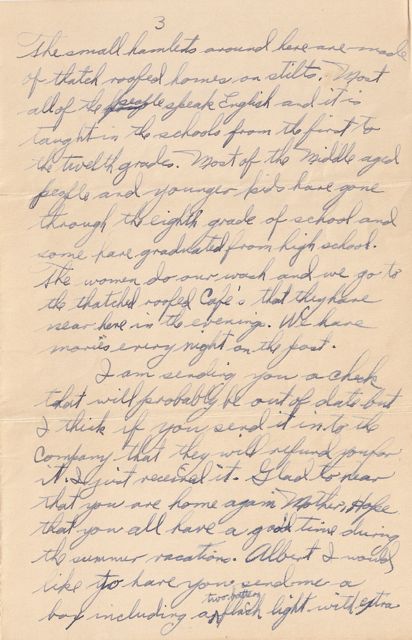 3
The small hamlets around here are made
of thatch roofed homes on stilts. Most
all of the people speak English and it is
taught in the schools from the first to
the twelth grades. Most of the middle aged
people and younger kids have gone
through the eighth grade of school and
some have graduated from high school.
The women do our wash and we go to
the thatched roofed Café's that they have
near here in the evenings. We have
movies every night on the post.
I am sending you a check
that will probably be out of date but
I think if you send it in to the
Company that they will refund you for
it. I just received it. Glad to hear
that you are home again Mother, Hope
that you all have a good time during
the summer vacation. Albert I would
like to have you send me a
two battery
box including a flash light with extra